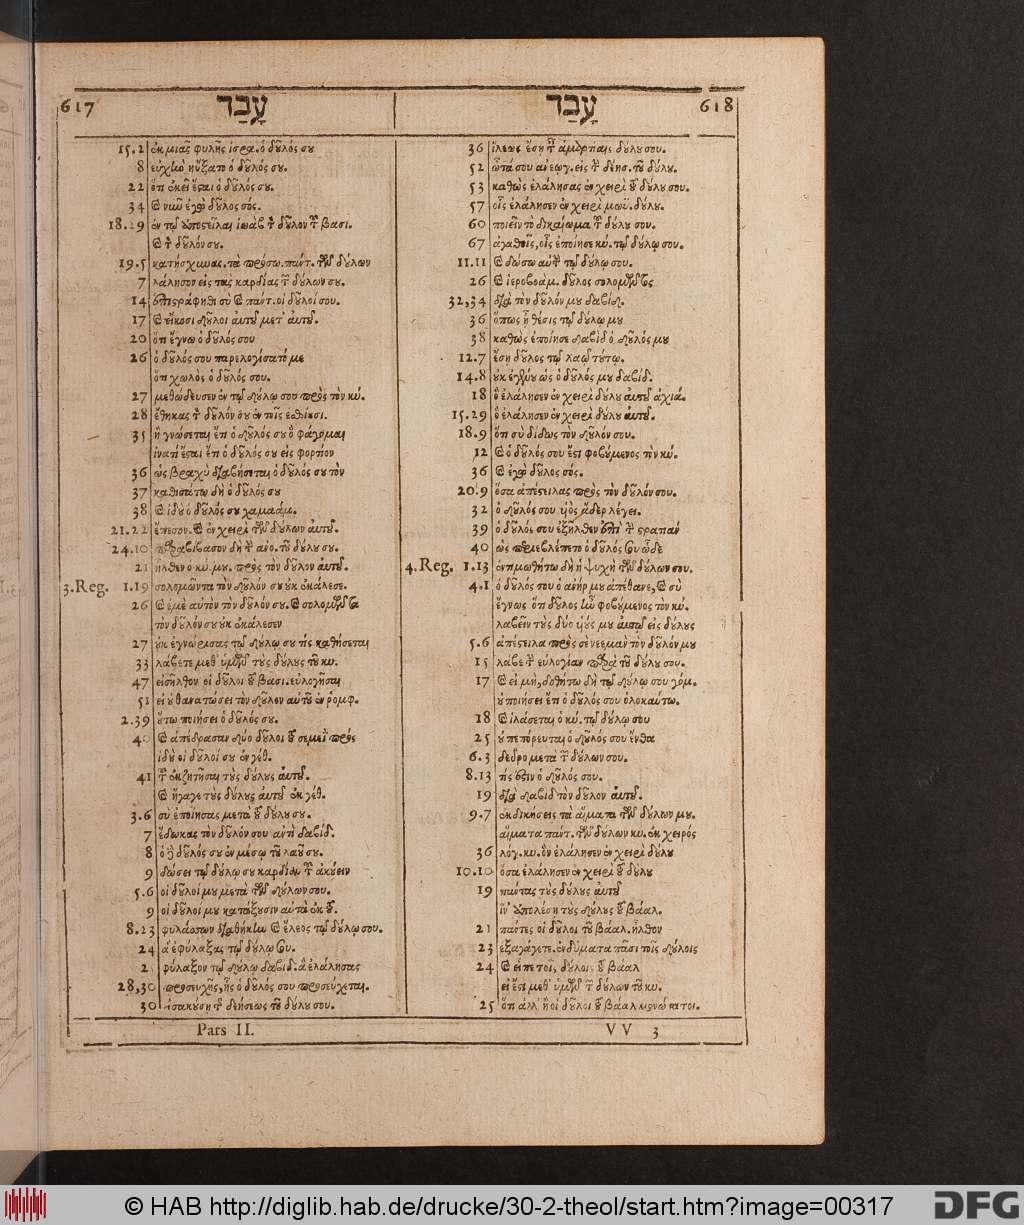 617 עָבַד
15.2 ἐκ μιᾶς φυλῆς ἰσρα. ὁ δοῦλός σου
8 εὐχὴν ηὔξατο ὁ δοῦλός σου.
22 ὅτι ἐκεῖ ἔσται ὁ δοῦλός σου.
34 καὶ νῦν ἐγὼ δοῦλος σός.
18.29 ἐν τῷ ἀποστεῖλαι ἰωὰβ τὸν δοῦλον τοῦ βασι.
καὶ τὸν δοῦλόν σου.
19.5 κατῄσχυνας. τὰ πρόσω. πάντ. τῶν δούλων
7 λάλησον εἰς τὰς καρδίας τῶν δούλων σου.
14 ἐπιστράφηθι σὺ καὶ πάντ. οἱ δοῦλοί σου.
17 καὶ εἴκοσι δοῦλοι αὐτοῦ μετ' αὐτοῦ.
20 ὅτι ἔγνω ὁ δοῦλός σου
26 ὁ δοῦλός σου παρελογίσατό με
ὅτι χωλὸς ὁ δοῦλός σου.
27 μεθώδευσεν ἐν τῷ δούλῳ σου πρὸς τὸν κύ.
28 ἔθηκας τὸν δοῦλόν σου ἐν τοῖς ἐσθίουσι.
35 ἢ γνώσεται ἔτι ὁ δοῦλός σου ὃ φάγομαι
ἱνατί ἔσται ἔτι ὁ δοῦλός σου εἰς φορτίον
36 ὡς βραχὺ διαβήσεται ὁ δοῦλός σου τὸν
37 καθισάτω δὴ ὁ δοῦλός σου
38 καὶ ἰδοὺ ὁ δοῦλός σου χαμαάμ.
21.22 ἔπεσον. καὶ ἐν χειρὶ τῶν δούλων αὐτοῦ.
24.10 παραβίβασον δὴ τὴν ἀνο. τοῦ δούλου σου.
21 ἦλθεν ὁ κύ. μου. πρὸς τὸν δοῦλον αὐτοῦ.
3.Reg. 1.19 σολομῶντα τὸν δοῦλόν σου οὐκ ἐκάλεσε.
26 καὶ ἐμὲ αὐτὸν τὸν δοῦλόν σου. καὶ σολομῶντα
τὸν δοῦλόν σου οὐκ ἐκάλεσεν
27 οὐκ ἐγνώρισας τῷ δούλῳ σου τίς καθήσεται
33 λάβετε μεθ' ὑμῶν τοὺς δούλους τοῦ κυ.
47 εἰσῆλθον οἱ δοῦλοι τοῦ βασι. εὐλογῆσαι
51 εἰ οὐ θανατώσει τὸν δοῦλον αὐτοῦ ἐν ῥομφ.
2.39 οὕτω ποιήσει ὁ δοῦλός σου.
40 καὶ ἀπέδρασαν δύο δοῦλοι τοῦ σεμεῒ πρὸς
ἰδοὺ οἱ δοῦλοί σου ἐν γέθ.
41 τοῦ ἐκζητῆσαι τοὺς δούλους αὐτοῦ.
καὶ ἤγαγε τοὺς δούλους αὐτοῦ ἐκ γέθ.
3.6 σὺ ἐποίησας μετὰ τοῦ δούλου σου.
7 ἔδωκας τὸν δοῦλόν σου ἀντὶ δαβίδ.
8 ὁ δὲ δοῦλός σου ἐν μέσῳ τοῦ λαοῦ σου.
9 δώσει τῷ δούλῳ σου καρδίαν τοῦ ἀκούειν
5.6 οἱ δοῦλοί μου μετὰ τῶν δούλων σου.
9 οἱ δοῦλοί μου κατάξουσιν αὐτὰ ἐκ τοῦ.
8.23 φυλάσσων διαθήκην καὶ ἔλεος τῷ δούλῳ σου.
24 ἃ ἐφύλαξας τῷ δούλῳ σου.
2 φύλαξον τῷ δούλῳ δαβίδ. ἃ ἐλάλησας
28,30 προσευχῆς, ἧς ὁ δοῦλός σου προσεύχεται.
30 εἰσακούσῃ τῆς δεήσεως τοῦ δούλου σου.
Pars II.
עָבַד 618
36 ἵλεως ἔσῃ ταῖς ἁμαρτίαις δούλου σου.
52 ὦτά σου ἀνεῳγ. εἰς τὴν δέησ. τοῦ δούλου.
53 καθὼς ἐλάλησας ἐν χειρὶ τοῦ δούλου σου.
57 οἷς ἐλάλησεν ἐν χειρὶ μωϋ. δούλου.
60 ποιεῖν τὸ δικαίωμα τοῦ δούλου σου.
67 ἀγαθοῖς, οἷς ἐποίησε κύ. τῷ δούλῳ σου.
11.11 καὶ δώσω αὐτὴν τῷ δούλῳ σου.
26 καὶ ἱεροβοάμ. δοῦλος σολομῶντος
32,34 διὰ τὸν δοῦλόν μου δαβίδ.
36 ὅπως ᾖ θέσις τῷ δούλῳ μου
38 καθὼς ἐποίησε δαβὶδ ὁ δοῦλός μου
12.7 ἔσῃ δοῦλος τῷ λαῷ τούτῳ.
14.8 οὐκ ἐγένου ὡς ὁ δοῦλός μου δαβίδ.
18 ὃ ἐλάλησεν ἐν χειρὶ δούλου αὐτοῦ ἀχιά.
15.29 ὃ ἐλάλησεν ἐν χειρὶ δούλου αὐτοῦ.
18.9 ὅτι σὺ δίδως τὸν δοῦλόν σου.
12 καὶ ὁ δοῦλός σου ἔστι φοβούμενος τὸν κύ.
36 καὶ ἐγὼ δοῦλος σός.
20.9 ὅσα ἀπέστειλας πρὸς τὸν δοῦλόν σου.
32 ὁ δοῦλός σου υἱὸς ἄδερ λέγει.
39 ὁ δοῦλός σου ἐξῆλθεν ἐπὶ τὴν στρατιὰν
40 ὡς περιεβλέπετο ὁ δοῦλός σου ὧδε
4.Reg. 1.13 ἐντιμωθήτω δὴ ἡ ψυχὴ τῶν δούλων σου.
4.1 ὁ δοῦλός σου ὁ ἀνήρ μου ἀπέθανε, καὶ σὺ
ἔγνως ὅτι δοῦλος ἦν φοβούμενος τὸν κύ.
λαβεῖν τοὺς δύο υἱούς μου αὐτῷ εἰς δούλους
5.6 ἀπέστειλα πρὸς σὲ νεεμὰν τὸν δοῦλόν μου
15 λάβε τὴν εὐλογίαν παρὰ τοῦ δούλου σου.
17 καὶ εἰ μὴ, δοθήτω δὴ τῷ δούλῳ σου γόμ.
οὐ ποιήσει ἔτι ὁ δοῦλός σου ὁλοκαύτω.
18 καὶ ἱλάσεται ὁ κύ. τῷ δούλῳ σου
25 οὐ πεπόρευται ὁ δοῦλός σου ἔνθα
6.3 δεῦρο μετὰ τῶν δούλων σου.
8.13 τίς ἐστιν ὁ δοῦλός σου.
19 διὰ δαβὶδ τὸν δοῦλον αὐτοῦ.
9.7 ἐκδικήσεις τὰ αἵματα τῶν δούλων μου.
αἵματα πάντ. τῶν δούλων κυ. ἐκ χειρός
36 λόγ. κυ. ὃν ἐλάλησεν ἐν χειρὶ δούλου
10.10 ὅσα ἐλάλησεν ἐν χειρὶ τοῦ δούλου
19 πάντας τοὺς δούλους αὐτοῦ
ἵν' ἀπολέσῃ τοὺς δούλους τοῦ βάαλ.
21 πάντες οἱ δοῦλοι τοῦ βάαλ. ἦλθον
23 ἐξαγάγετε. ἐνδύματα πᾶσι τοῖς δούλοις
24 καὶ εἶπε τοῖς δούλοις τοῦ βάαλ
εἰ ἔστι μεθ' ὑμῶν τῶν δούλων τοῦ κυ.
25 ὅτι ἀλλ' ἢ οἱ δοῦλοι τοῦ βάαλ μονώτατοι.
VV 3
© HAB http://diglib.hab.de/drucke/30-2-theol/start.htm?image=00317
DFG